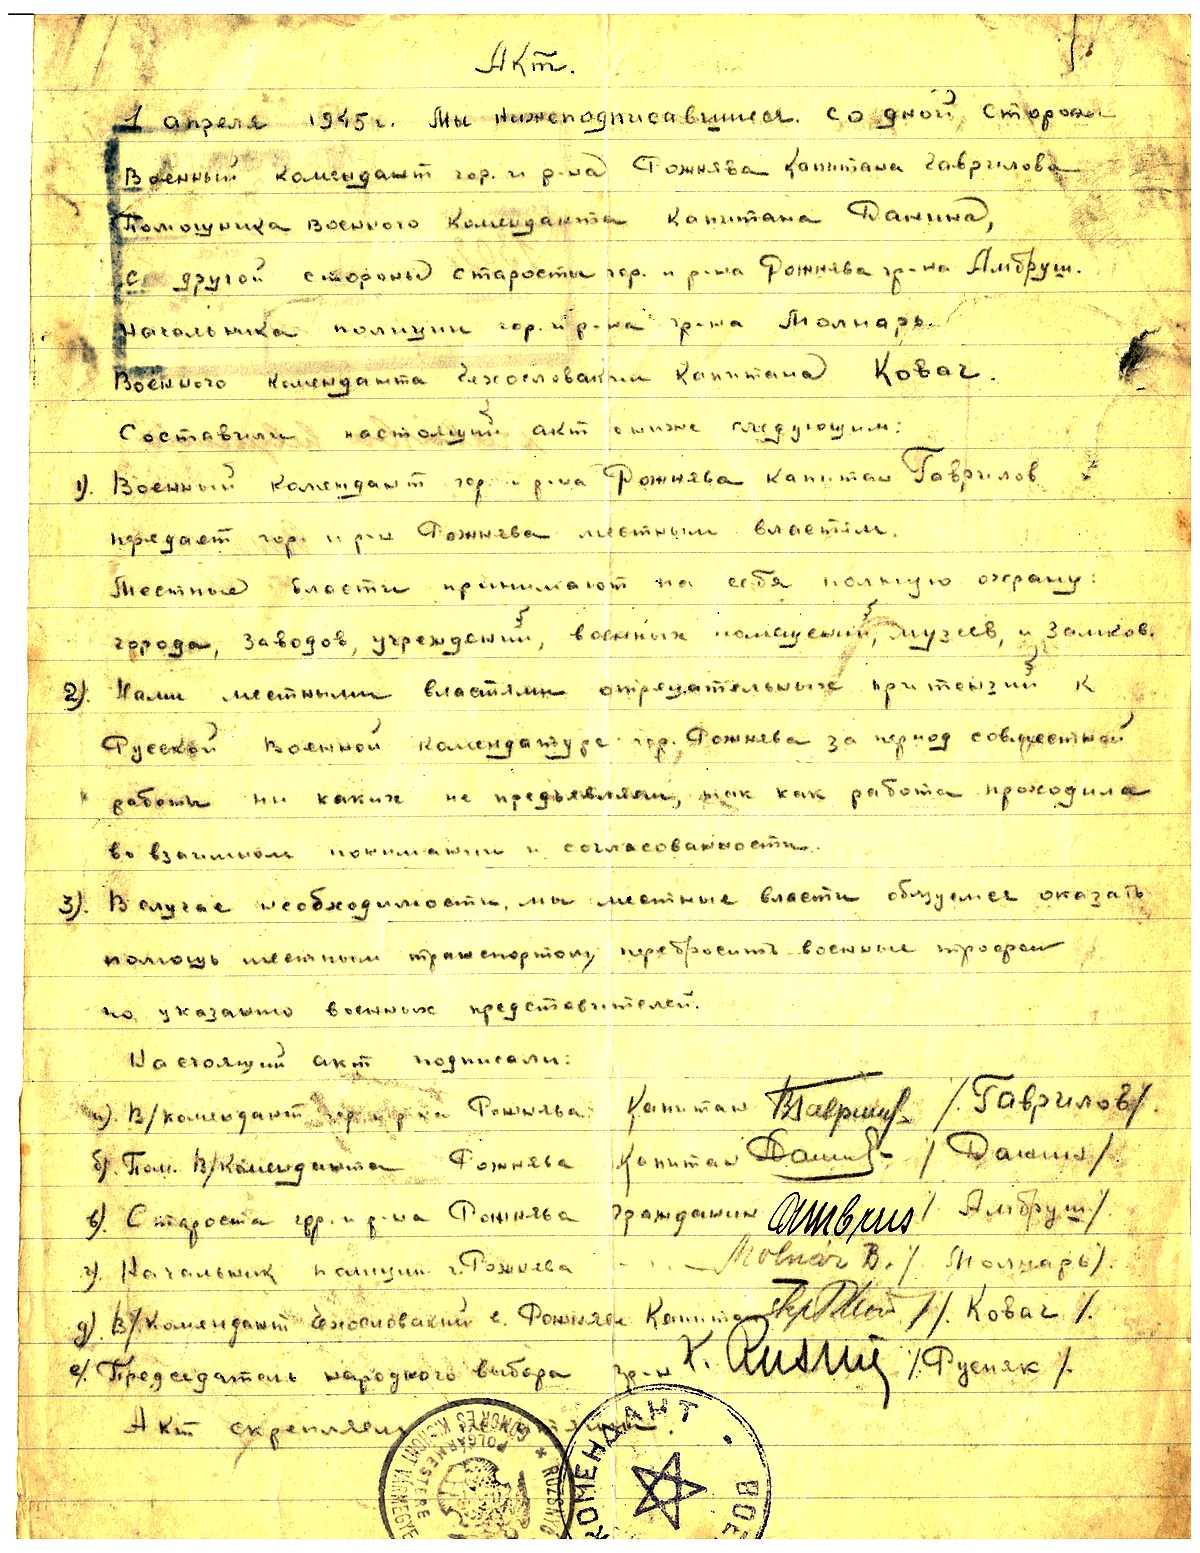 Акт.
1 апреля 1945 г. Мы нижеподписавшиеся. со дной стороны
Военный комендант гор. и р-на Рожнява Капитана Гаврилова
Помощника военного коменданта капитана Данина,
с другой стороны старосты гор. и р-на Рожнява гр-на Амбруш.
Начальника полиции гор. и р-на гр-на Молнарь.
Военного коменданта Чехословакии Капитана Ковач.
Составили настоящий акт о ниже следующим:
1). Военный комендант гор. и р-на Рожнява капитан Гаврилов
передает гор. и р-н Рожнява местным властям.
Местные власти принимают на себя полную охрану:
города, заводов, учреждений, военных помещений, музеев, и замков.
2). Нами местными властями отрицательных притензий к
Русской военной комендатуре гор. Рожнява за период совместной
работы ни каких не предъявляем, так как работа проходила
во взаимном понимании и согласованности.
3). В случае необходимости, мы местные власти обязуемся оказать
помощь местным транспортом, перебросить военные трофеи
по указанию военных представителей.
Настоящий акт подписали:
а). В/комендант гор. и р-на Рожнява Капитан /. Гаврилов/.
б). Пом. В/Коменданта Рожнява Капитан / Данин /.
в). Староста гор. и р-на Рожнява Гражданин Ambrus / Амбруш /.
г). Начальник полиции г. Рожнява Molnár B. /. Молнарь/.
д). В/Комендант Чехословакии г. Рожнява Капитан //. Ковач /.
е). Председатель народного выбора гр-н X. Rusnák /. Русняк /.
Акт скрепляем
★ ROZSNYÓ
GÖMÖR ÉS KISHONT VÁRMEGYE
POLGÁRMESTERE
КОМЕНДАНТ • ВОЕ